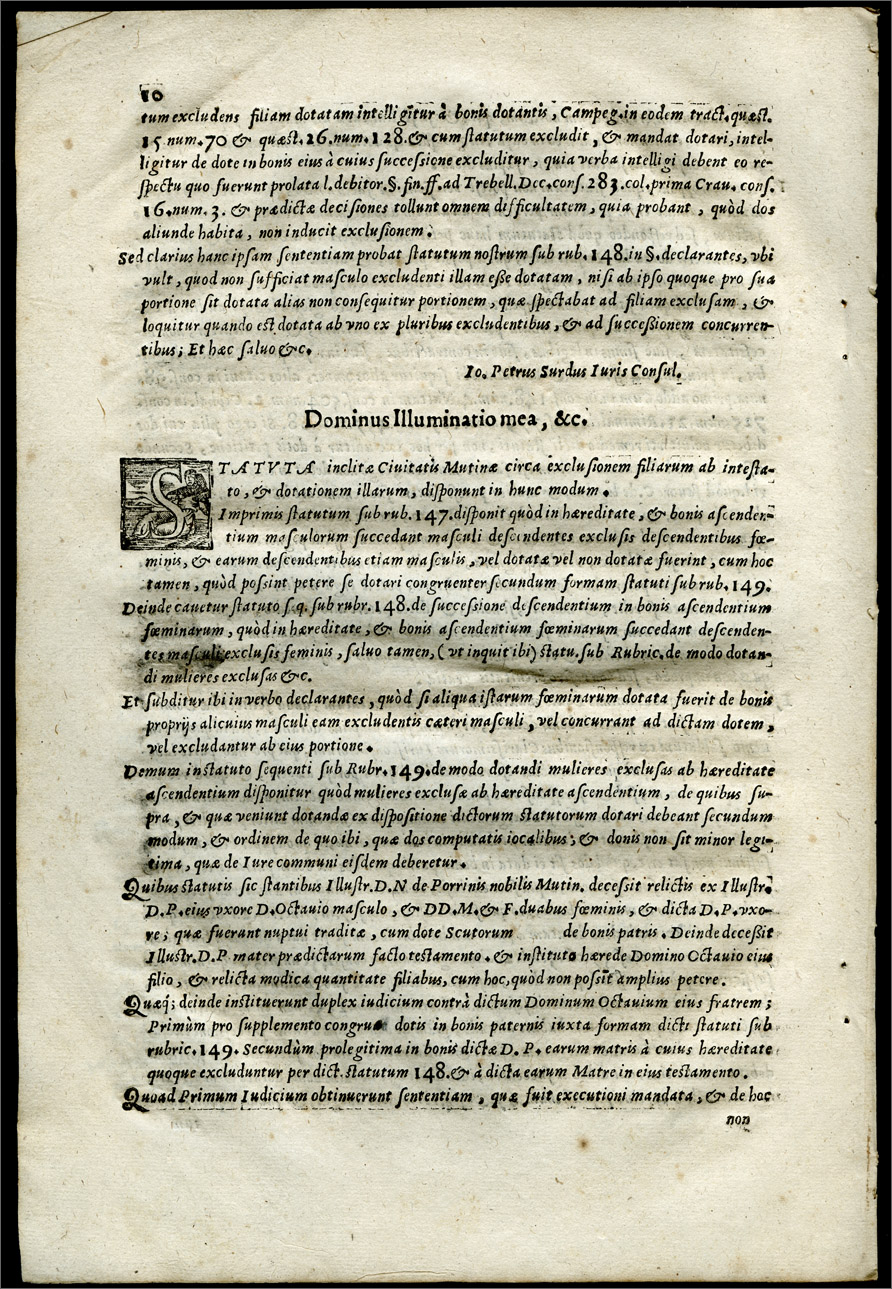 10
tum excludens filiam dotatam intelligitur à bonis dotantis, Campeg.in eodem tract.quæst.
15.num.70 & quæst.26.num.128.& cum ſtatutum excludit, & mandat dotari, intel-
ligitur de dote in bonis eius à cuius ſucceſsione excluditur, quia verba intelligi debent eo re-
ſpectu quo fuerunt prolata l.debitor.§.fin.ff.ad Trebell.Dec.conſ.283.col.prima Crau.conſ.
16.num.3. & prædictæ deciſiones tollunt omnem difficultatem, quia probant, quòd dos
aliunde habita, non inducit excluſionem.
Sed clarius hanc ipſam ſententiam probat ſtatutum noſtrum ſub rub.148.in §.declarantes, vbi
vult, quod non ſufficiat maſculo excludenti illam eſſe dotatam, niſi ab ipſo quoque pro ſua
portione ſit dotata alias non conſequitur portionem, quæ ſpectabat ad filiam excluſam, &
loquitur quando eſt dotata ab vno ex pluribus excludentibus, & ad ſucceſsionem concurren-
tibus; Et hæc ſaluo &c.
Io. Petrus Surdus Iuris Conſul.
Dominus Illuminatio mea, &c.
STATVTA inclitæ Ciuitatis Mutinæ circa excluſionem filiarum ab inteſta-
to, & dotationem illarum, diſponunt in hunc modum.
Imprimis ſtatutum ſub rub.147.diſponit quòd in hæreditate, & bonis aſcenden-
tium maſculorum ſuccedant maſculi deſcendentes excluſis deſcendentibus fœ-
minis, & earum deſcendentibus etiam maſculis, vel dotatæ vel non dotatæ fuerint, cum hoc
tamen, quòd poſsint petere ſe dotari congruenter ſecundum formam ſtatuti ſub rub.149.
Deinde cauetur ſtatuto ſeq. ſub rubr.148.de ſucceſsione deſcendentium in bonis aſcendentium
fœminarum, quòd in hæreditate, & bonis aſcendentium fœminarum ſuccedant deſcenden-
tes maſculi excluſis feminis, ſaluo tamen, (vt inquit ibi) ſtatu.ſub Rubric.de modo dotan-
di mulieres excluſas &c.
Et ſubditur ibi in verbo declarantes, quòd ſi aliqua iſtarum fœminarum dotata fuerit de bonis
proprijs alicuius maſculi eam excludentis cæteri maſculi, vel concurrant ad dictam dotem,
vel excludantur ab eius portione.
Demum in ſtatuto ſequenti ſub Rubr.149.de modo dotandi mulieres excluſas ab hæreditate
aſcendentium diſponitur quòd mulieres excluſæ ab hæreditate aſcendentium, de quibus ſu-
pra, & quæ veniunt dotandæ ex diſpoſitione dictorum ſtatutorum dotari debeant ſecundum
modum, & ordinem de quo ibi, quæ dos computatis iocalibus; & donis non ſit minor legi-
tima, quæ de Iure communi eiſdem deberetur.
Quibus ſtatutis ſic ſtantibus Illuſtr.D.N de Porrinis nobilis Mutin. deceſsit relictis ex Illuſtr.
D.P.eius vxore D.Octauio maſculo, & DD.M.& F.duabus fœminis, & dicta D.P.vxo-
re; quæ fuerunt nuptui traditæ, cum dote Scutorum de bonis patris. Deinde deceſsit
Illuſtr.D.P mater prædictarum facto teſtamento. & inſtituto hærede Domino Octauio eius
filio, & relicta modica quantitate filiabus, cum hoc, quòd non poſsint amplius petere.
Quæq; deinde inſtituerunt duplex iudicium contrà dictum Dominum Octauium eius fratrem;
Primùm pro ſupplemento congruæ dotis in bonis paternis iuxta formam dicti ſtatuti ſub
rubric.149. Secundùm pro legitima in bonis dictæ D. P. earum matris à cuius hæreditate
quoque excluduntur per dict.ſtatutum 148.& à dicta earum Matre in eius teſtamento.
Quoad Primum Iudicium obtinuerunt ſententiam, quæ fuit executioni mandata, & de hoc
non